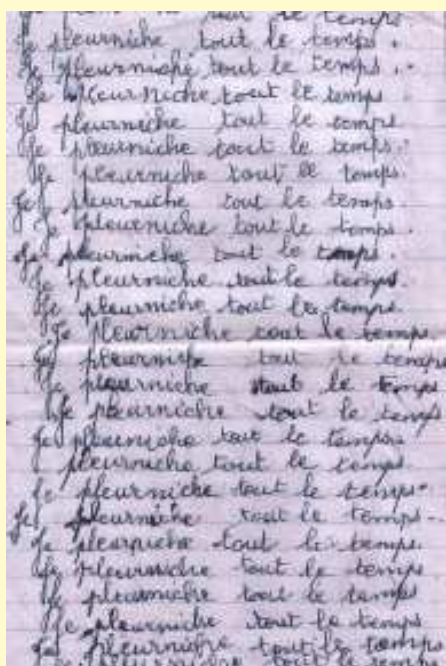 le temps
Je pleurniche tout le temps.
Je pleurniche tout le temps.
Je pleurniche tout le temps
Je pleurniche tout le temps
Je pleurniche tout le temps.
Je pleurniche tout le temps.
Je pleurniche tout le temps.
Je pleurniche tout le temps.
Je pleurniche tout le temps.
Je pleurniche tout le temps.
Je pleurniche tout le temps.
Je pleurniche tout le temps.
Je pleurniche tout le temps
Je pleurniche tout le temps
Je pleurniche tout le temps
Je pleurniche tout le temps
pleurniche tout le temps.
Je pleurniche tout le temps.
Je pleurniche tout le temps.
Je pleurniche tout le temps.
Je pleurniche tout le temps
Je pleurniche tout le temps
Je pleurniche tout le temps
Je pleurniche tout le temps